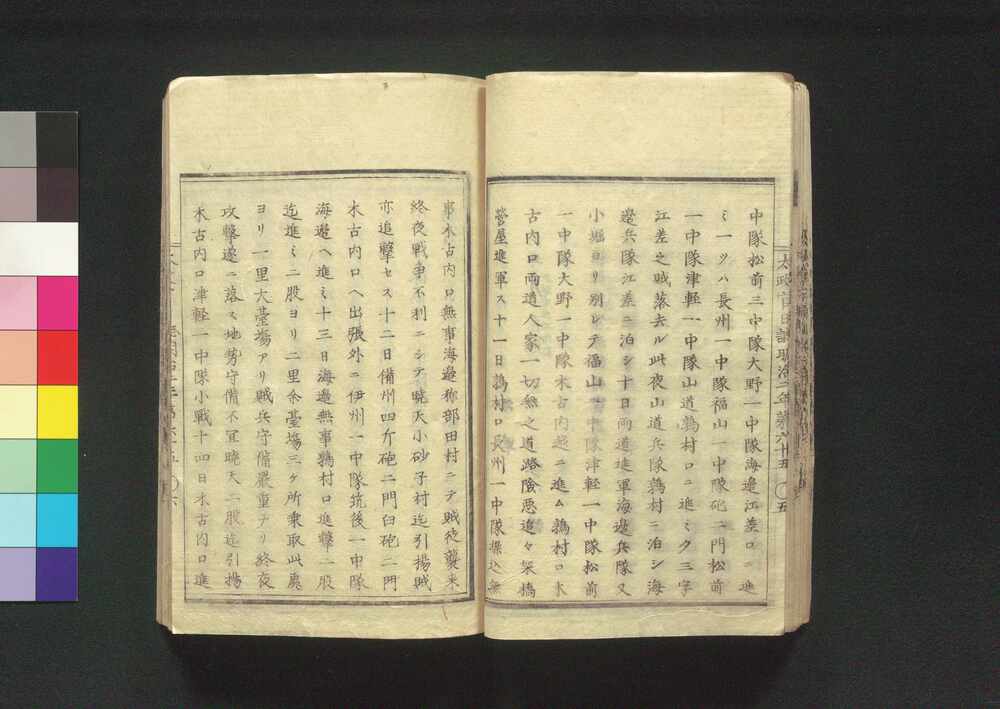 太政官日誌明治二年第六十五 〇五
中隊松前三中隊大野一中隊海邉江差口ニ進
ミ一ツハ長州一中隊福山一中隊砲二門松前
一中隊津軽一中隊山道鶉村口ニ進ミタ三字
江差之賊落去ル此夜山道兵隊鶉村ニ泊シ海
邉兵隊江差ニ泊シ十日両道進軍海邉兵隊又
小堀ヨリ別レテ福山一中隊津軽一中隊松前
一中隊大野一中隊木古内越ニ進ム鶉村口木
古内口両道人家一切無之道路險悪追々架橋
營屋進軍ス十一日鶉村口長州一中隊操込無
事木古内口無事海邉称部田村ニテ賊徒襲来
終夜戦争不利ニシテ曉天小砂子村迄引揚賊
亦追撃セス十二日備州四斤砲二門臼砲二門
木古内口ヘ出張外ニ伊州一中隊筑後一中隊
海邉ヘ進ミ十三日海邉無事鶉村口進撃二股
迄進ミ二股ヨリ二里余臺塲三ケ所乗取此處
ヨリ一里大臺塲アリ賊兵守備嚴重ナリ終夜
攻撃遂ニ落ス地勢守備不宜曉天二股迄引揚
木古内口津軽一中隊小戦十四日木古内口進